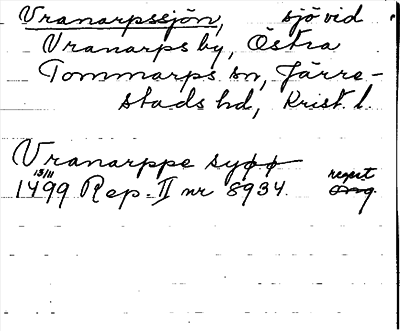 Vranarpssjön, sjö vid
Vranarps by, Östra
Tommarps sn, Järre-
stads hd, Krist. l.
Vranarppe syøø
13/11 regest
1499 Rep. II nr 8934. orig.